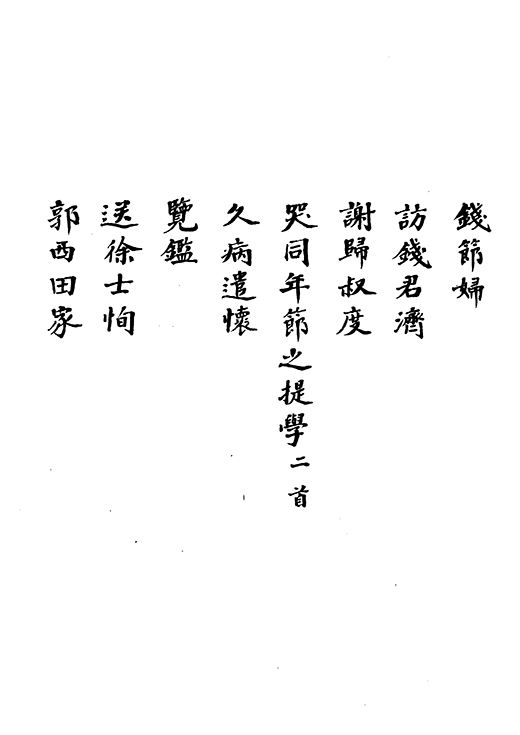 錢節婦
訪錢君濟
謝歸叔度
哭同年節之提學二首
久病遣懷
覽鑑
送徐士恂
郭西田家